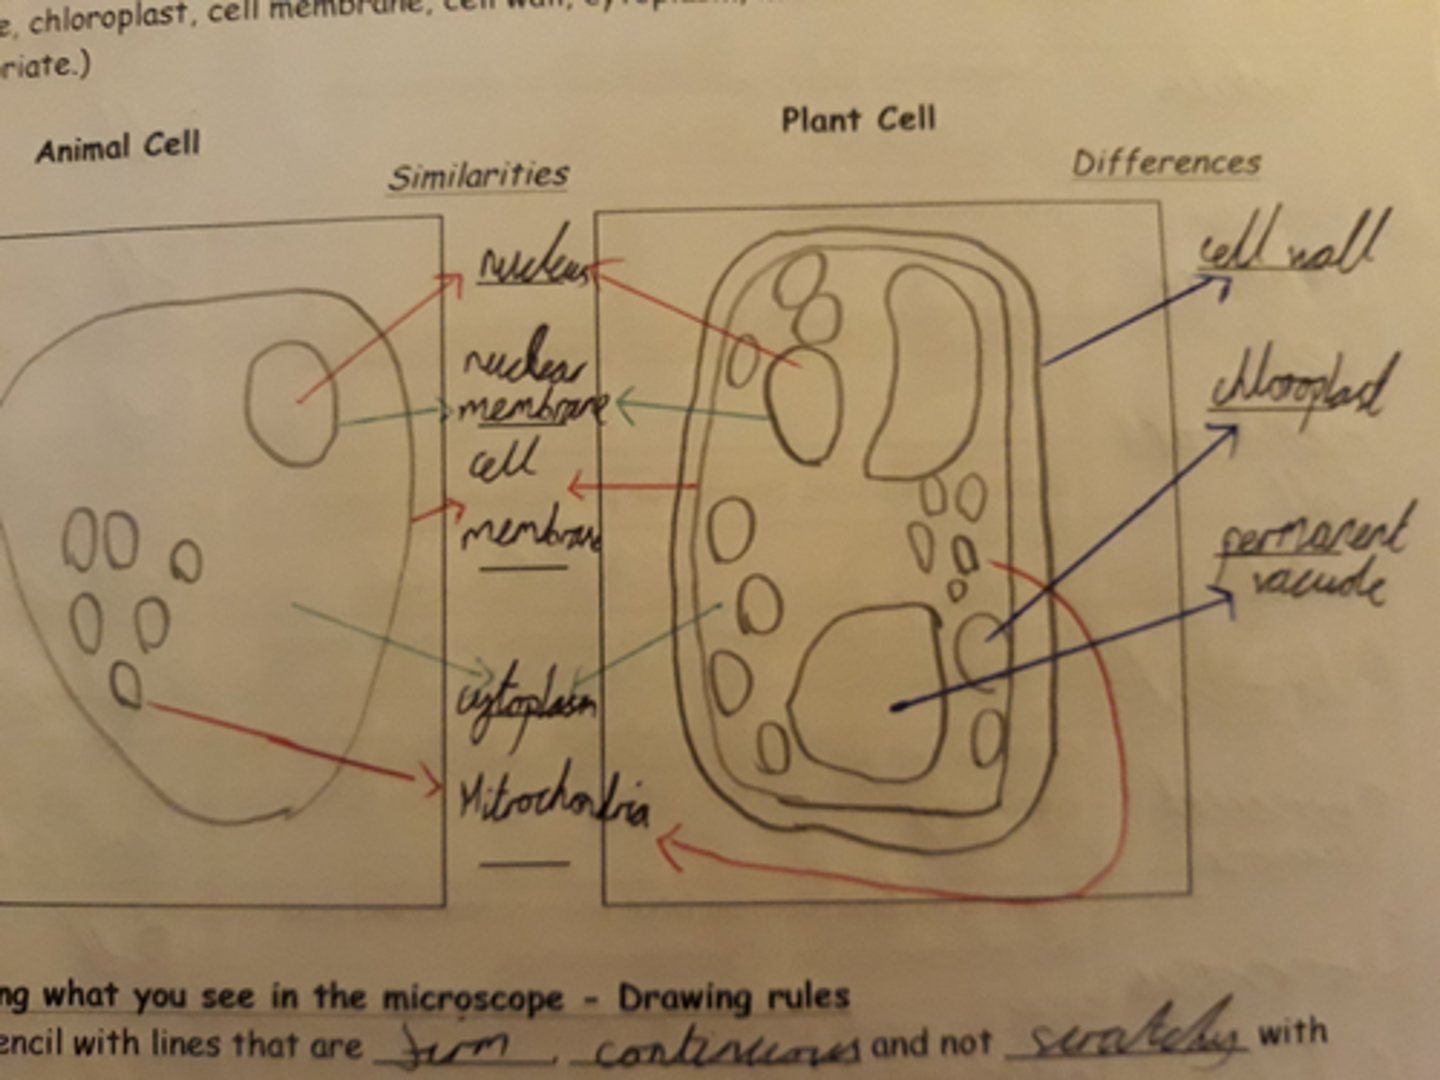 e, chloroplast, cell membrane, cell wall, cytoplasm,
riate.)
Animal Cell
Plant Cell
Similarities
Differences
nucleus
nuclear
membrane
cell
membrane
cytoplasm
Mitochondria
cell wall
chloroplast
permanent
vacuole
ng what you see in the microscope - Drawing rules
encil with lines that are firm, continuous and not scratchy with